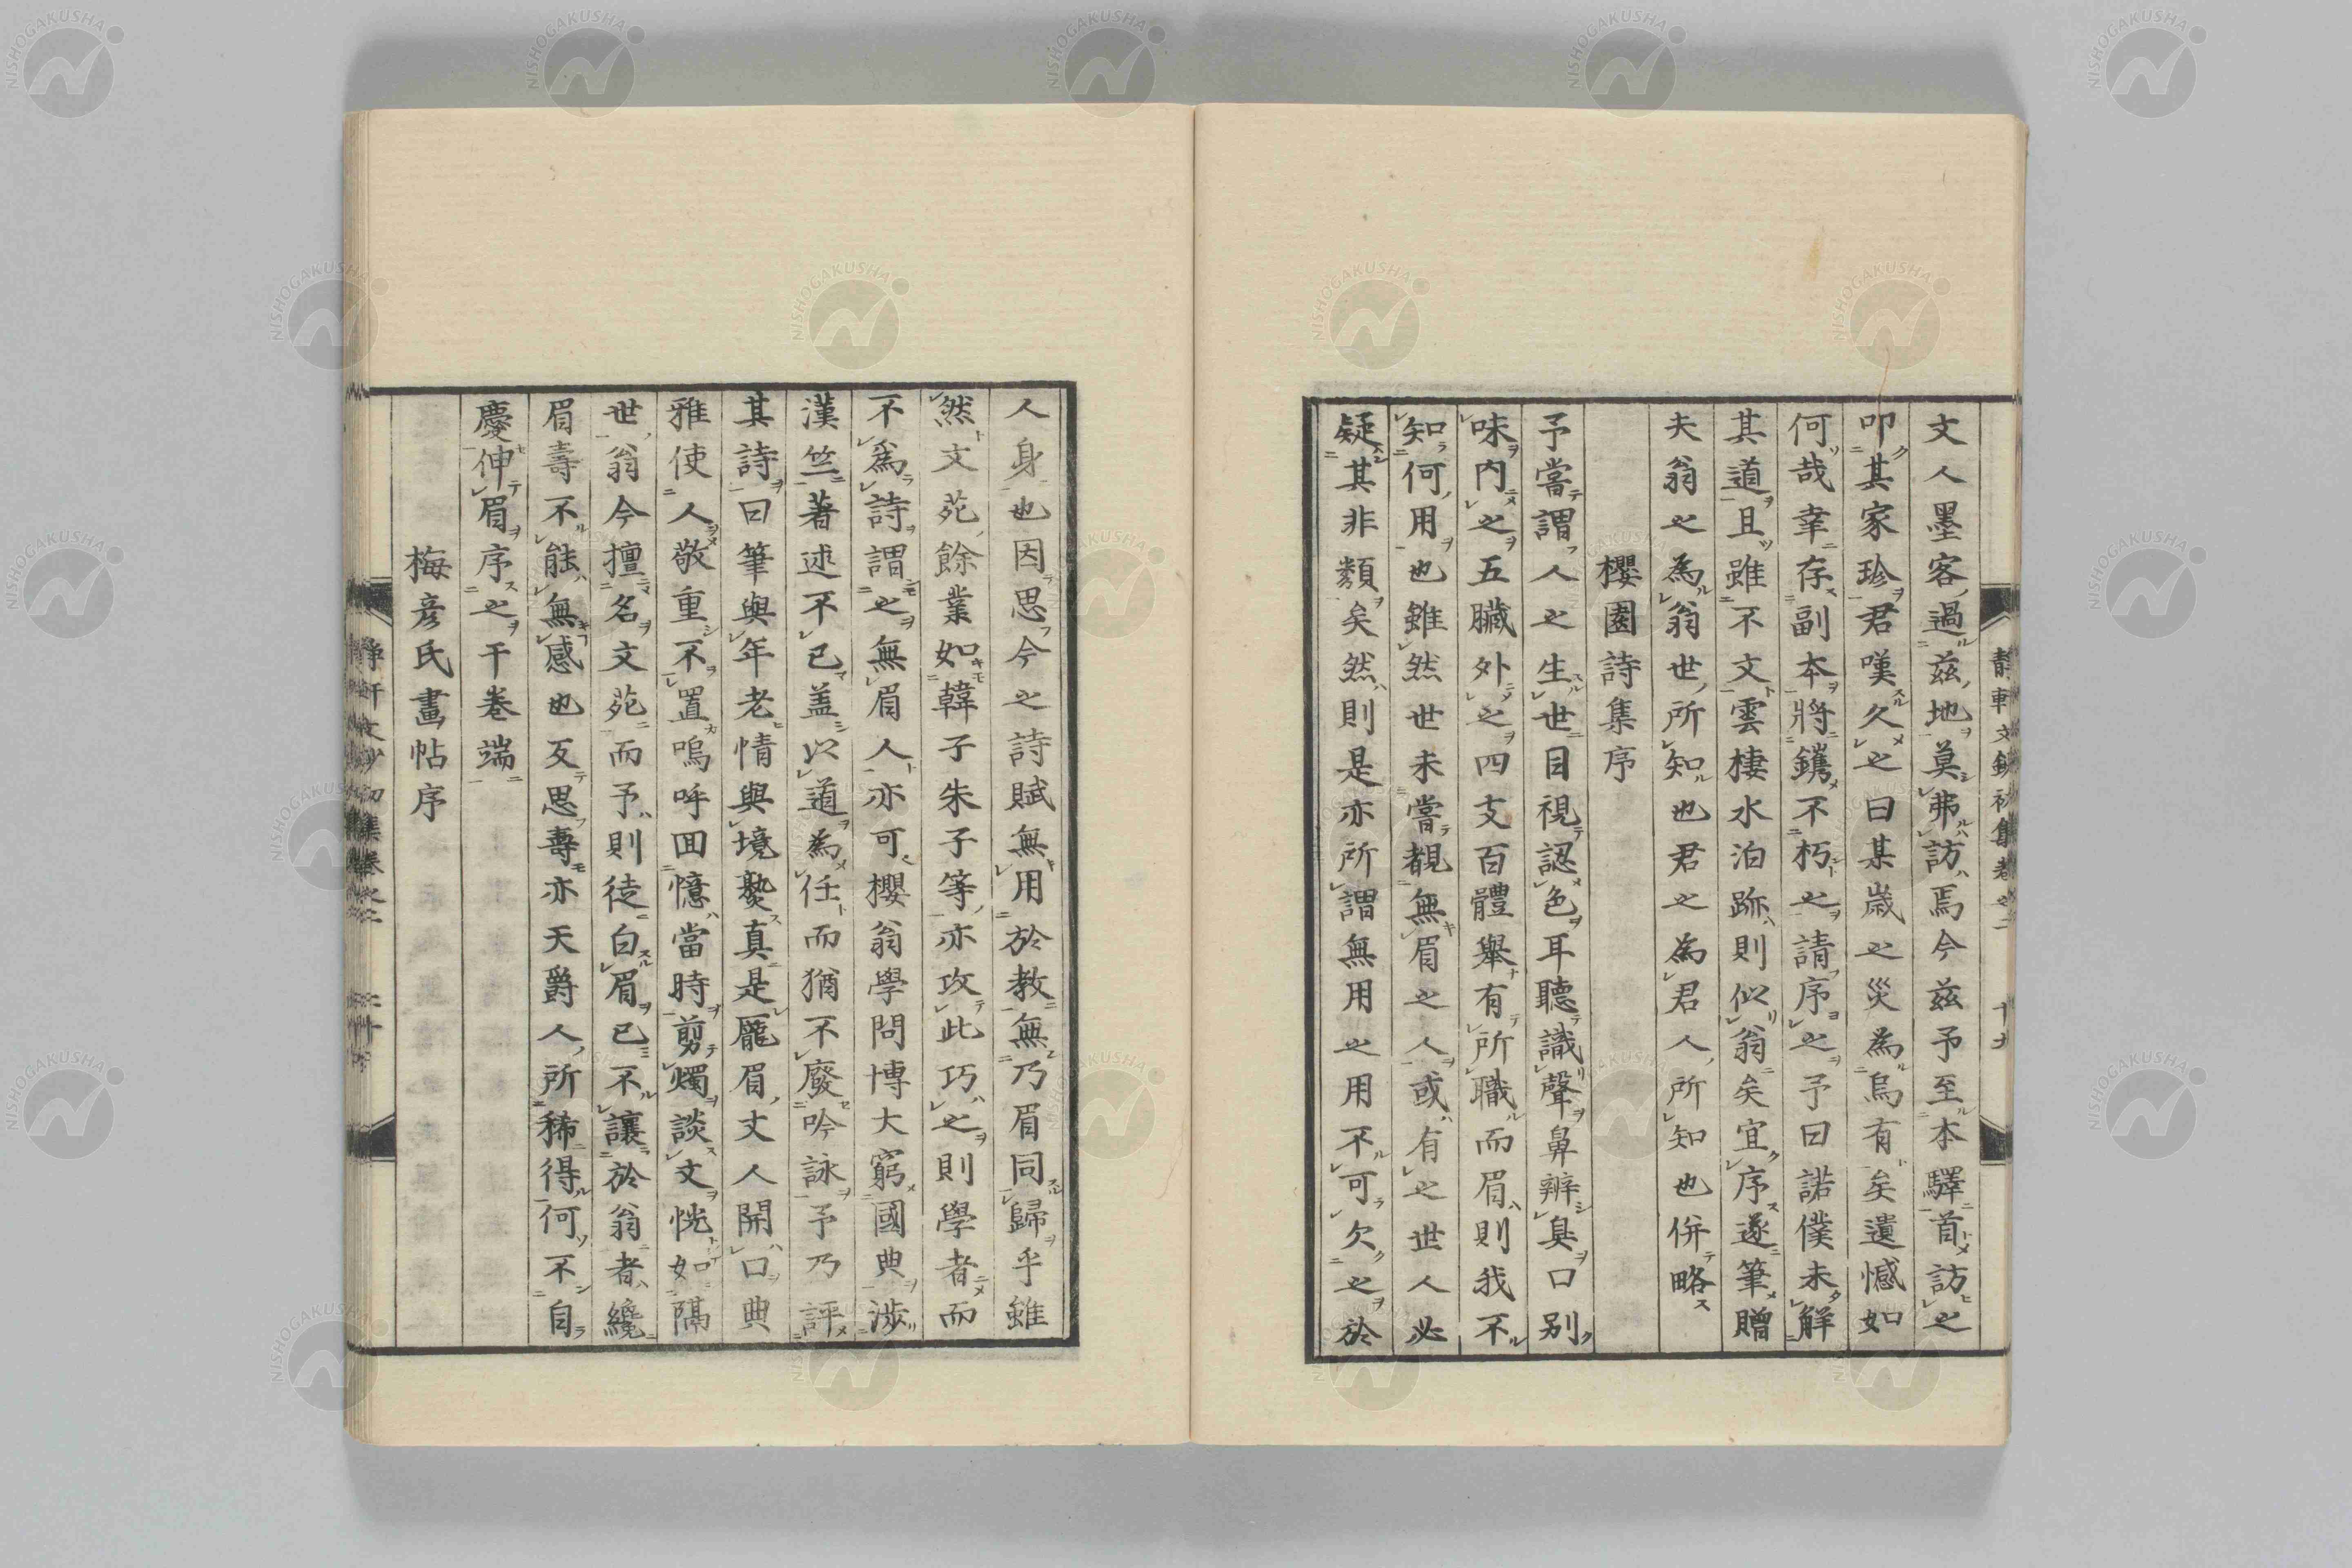 靜軒文鈔初集卷之二 十九
文人墨客過茲地莫弗訪焉今茲予至本驛首訪之
叩其家珍君嘆久之曰某歲之災為烏有矣遺憾如
何哉幸存副本將鐫不朽之請序之予曰諾僕未解
其道且雖不文雲棲水泊跡則似翁矣宜序遂筆贈
夫翁之為翁世所知也君之為君人所知也併略
櫻園詩集序
予嘗謂人之生世目視認色耳聽識聲鼻辨臭口別
味内之五臟外之四支百體舉有所職而眉則我不
知何用也雖然世未嘗覩無眉之人或有之世人必
疑其非類矣然則是亦所謂無用之用不可欠之於
人身也因思今之詩賦無用於教無乃眉同歸乎雖
然文苑餘業如韓子朱子等亦攻此巧之則學者而
不為詩謂之無眉人亦可櫻翁學問博大窮國典涉
漢竺著述不已蓋以道為任而猶不廢吟詠予乃評
其詩曰筆與年老情與境熟真是厖眉丈人開口典
雅使人人敬重不置嗚呼回憶當時剪燭談文恍如隔
世翁今擅名文苑而予則徒白眉已不讓於翁者纔
眉壽不能無感也反思壽亦天爵人所稀得何不自
慶伸眉序之于卷端
梅彦氏畫帖序
靜軒文鈔初集卷之二 二十
NISHOGAKUSHA